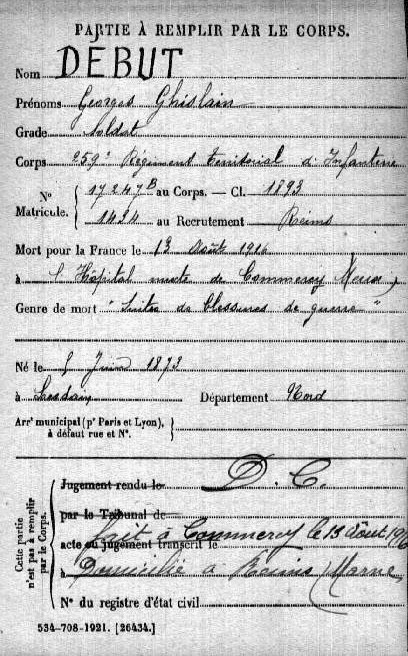 PARTIE À REMPLIR PAR LE CORPS.
Nom DÉBUT
Prénoms Georges Ghislain
Grade Soldat
Corps 259e Régiment Territorial d'Infanterie
No Matricule. 17247B au Corps. — Cl. 1893
1434 au Recrutement Reims
Mort pour la France le 13 Août 1916
à l'Hôpital mixte de Commercy Meuse
Genre de mort "Suites de blessures de guerre"
Né le Juin 1873
à Département Nord
Arrt municipal (pr Paris et Lyon),
à défaut rue et No.
Cette partie n'est pas à remplir par le Corps.
Jugement rendu le D. C.
par le Tribunal de
acte ou jugement transcrit le Fait à Commercy le 13 août
à Domicilié à Reims (Marne)
No du registre d'état civil
534-708-1921. [26434.]